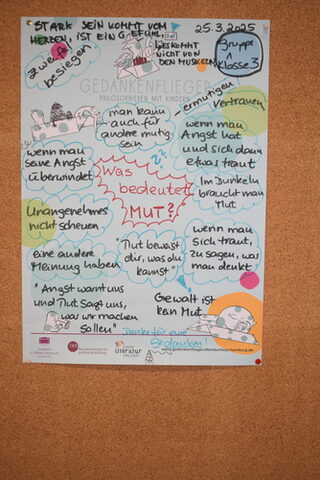 STARK SEIN KOMMT VOM
HERZEN, IST EIN GEFÜHL,
ES KOMMT
NICHT VON
DEN MUSKELN
25.3.2025
Gruppe 1
Klasse 3
Zweifel
besiegen
GEDANKENFLIEGER
PHILOSOPHIEREN MIT KINDERN
ermutigen
Vertrauen
man kann
auch für
andere mutig
sein
wenn man
Angst hat
und sich dann
etwas traut
wenn man
seine Angst
überwindet
Was
bedeutet
MUT?
Im Dunkeln
braucht man
Mut
Unangenehmes
nicht scheuen
eine andere
Meinung haben
"Mut beweist
dir, was du
kannst"
wenn man
sich traut,
zu sagen, was
man denkt
"Angst warnt uns
und Mut sagt uns,
was wir machen
sollen"
Gewalt ist
kein Mut
Danke für eure
Gedanken!
Bundeszentrale für
politische Bildung
Literatur
www.gedankenflieger.literaturhaus-hamburg.de